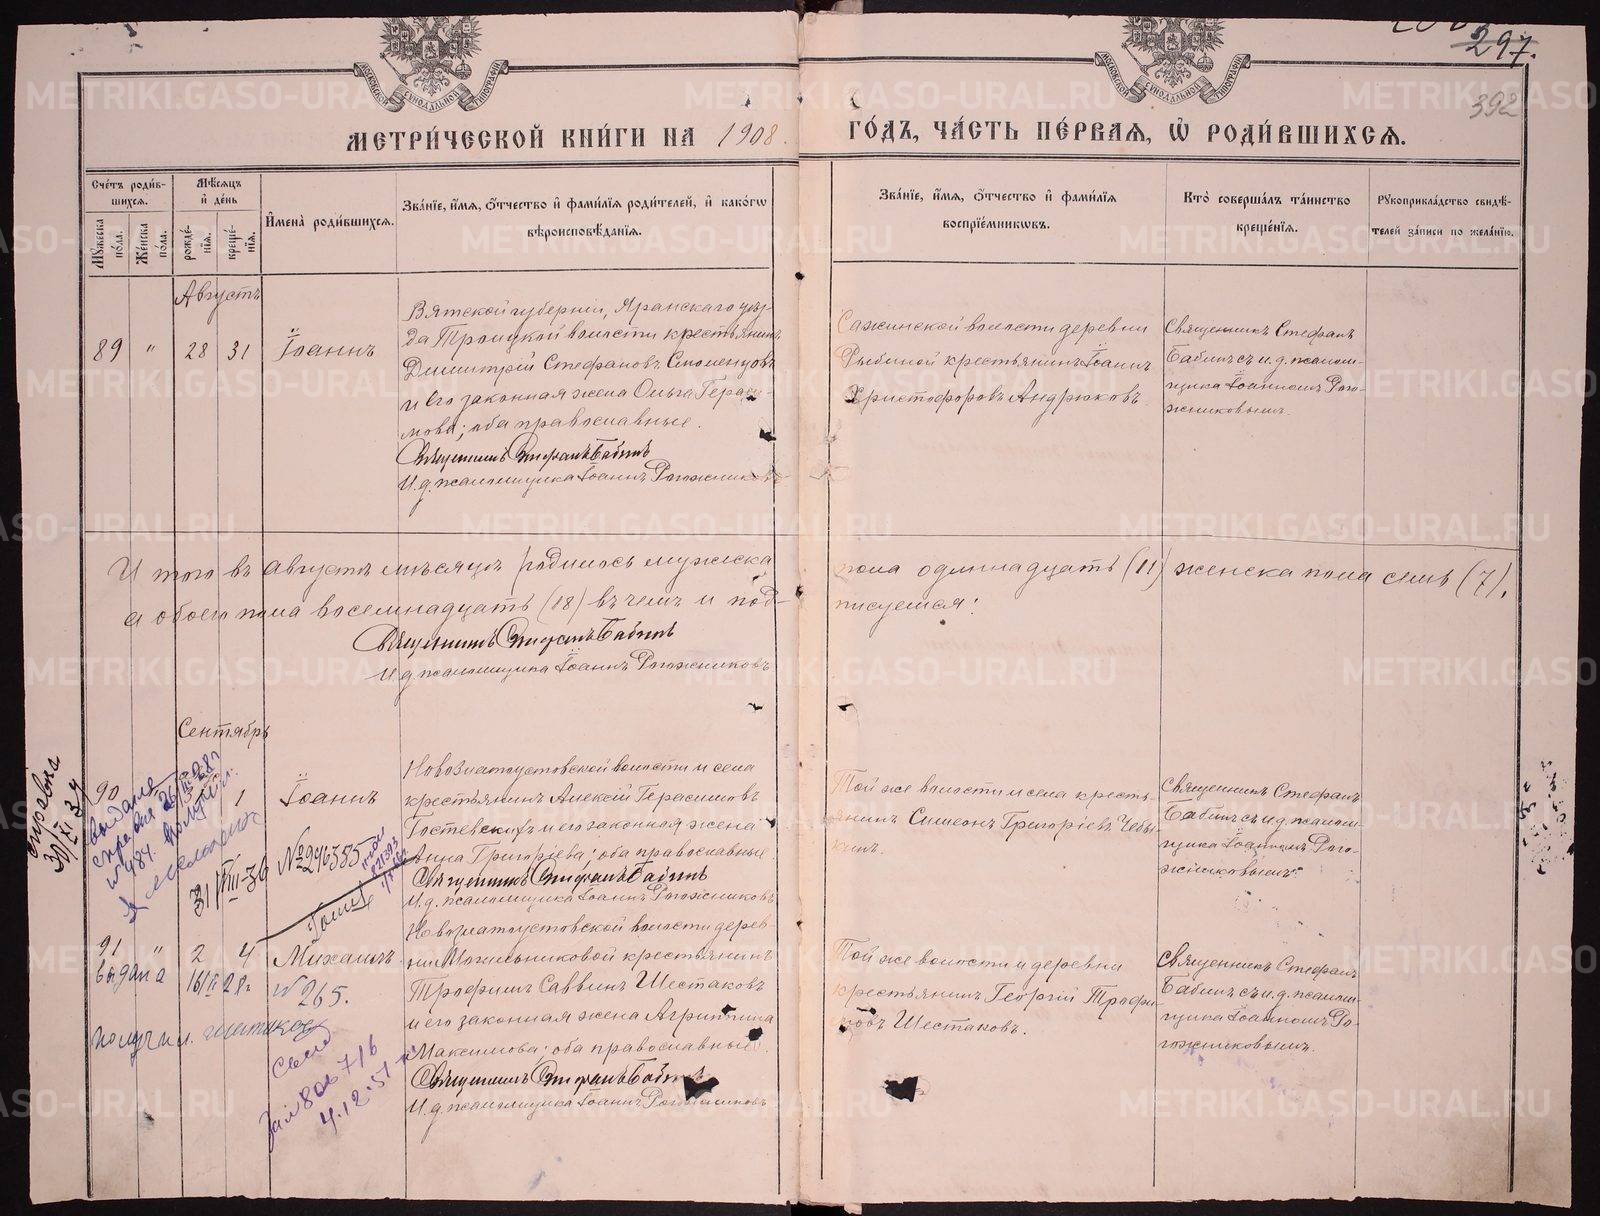 297.
392
МЕТРИ́ЧЕСКОЙ КНИ́ГИ НА 1908 ГО́ДЪ, ЧА́СТЬ ПЕ́РВАЯ, Ѡ҆ РОДИ́ВШИХСѦ.
Сче́тъ роди́в-
шихсѧ.
Мꙋжеска по́ла.
Же́нска по́ла.
Мѣ́сѧцъ и҆ де́нь
рожде́-
нїѧ.
креще́-
нїѧ.
И҆мена̀ роди́вшихсѧ.
Зва́нїе, и҆́мѧ, ѻ҆́тчество и҆ фами́лїѧ роди́телей, и҆ како́гѡ
вѣроисповѣ́данїѧ.
Зва́нїе, и҆́мѧ, ѻ҆́тчество и҆ фами́лїѧ
воспрїе́мникѡвъ.
Кто̀ соверша́лъ та́инство
креще́нїѧ.
Рꙋкоприкла́дство свидѣ́-
телей за́писи по жела́нїю.
Августъ
89 " 28 31 Іоаннъ
Вятской губерніи, Яранскаго уѣз-
да Троицкой волости крестьянинъ
Димитрій Стефановъ
и его законная жена Ольга Гераси-
мова; оба православные.
Священникъ Стефанъ Бабинъ
И.д. псаломщика Іоаннъ Рогожниковъ
Сажинской волости деревни
крестьянинъ Іоаннъ
Христофоровъ Андрюковъ.
Священникъ Стефанъ
Бабинъ съ и.д. псалом-
щика Іоанномъ Рого-
жниковымъ.
И того въ августѣ мѣсяцѣ родилось мужеска пола одиннадцать (11) женска пола семь (7),
а обоего пола восемнадцать (18) въ чемъ и под-
писуемся:
Священникъ Стефанъ Бабинъ
И.д. псаломщика Іоаннъ Рогожниковъ
Сентябрь
90 1 Іоаннъ
Новозлатоустовской волости и села
крестьянинъ Алексѣй Герасимовъ
Гостевскихъ и его законная жена
Анна Григоріева; оба православные
Священникъ Стефанъ Бабинъ
И.д. псаломщика Іоаннъ Рогожниковъ
Той же волости и села кресть-
янинъ Симеонъ Григоріевъ Чебы-
кинъ.
Священникъ Стефанъ
Бабинъ съ и.д. псалом-
щика Іоанномъ Рого-
жниковымъ.
31/VIII-36 №946355
91 " 2 4 Михаилъ
Новозлатоустовской волости дерев-
ни крестьянинъ
Трофимъ Саввинъ Шестаковъ
и его законная жена Агриппина
Максимова; оба православные.
Священникъ Стефанъ Бабинъ
И.д. псаломщика Іоаннъ Рогожниковъ
Той же волости и деревни
крестьянинъ Георгій Трофи-
мовъ Шестаковъ.
Священникъ Стефанъ
Бабинъ съ и.д. псалом-
щика Іоанномъ Ро-
гожниковымъ.
выдана
№ 265.
4.12.51
METRIKI.GASO-URAL.RU